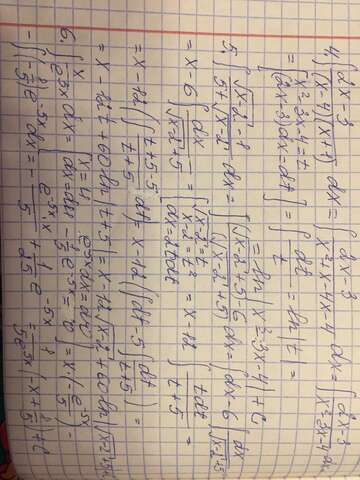 4. ∫ (2x-3)/((x-4)(x+1)) dx = ∫ (2x-3)/(x²+x-4x-4) dx = ∫ (2x-3)/(x²-3x-4) dx =
= [x²-3x-4=t (2x-3)dx=dt] = ∫ dt/t = ln|t| =
= ln|x²-3x-4|+C
5 ∫ (√(x-2)-1)/(5+√(x-2)) dx = ∫ (√(x-2)+5-6)/(√(x-2)+5) dx = ∫ dx-6 ∫ dx/(√(x-2)+5)
= x-6 ∫ dx/(√(x-2)+5) = [√(x-2)=t x-2=t² dx=2tdt] = x-12 ∫ tdt/(t+5) =
= x-12(∫ (t+5-5)/(t+5) dt = x-12(∫ dt-5 ∫ dt/(t+5)) =
= x-12t+60ln|t+5| = x-12√(x-2)+60ln|√(x-2)+5|
6. ∫ x/e^(5x) dx = [x=u e^(-5x)dx=dv dx=du -1/5 e^(-5x)=v] = x(-e^(-5x)/5)-
-∫(-1/5)e^(-5x) dx = -e^(-5x)x/5 + 1/25 e^(-5x) = 1/5 e^(-5x)(-x+1/5)+C